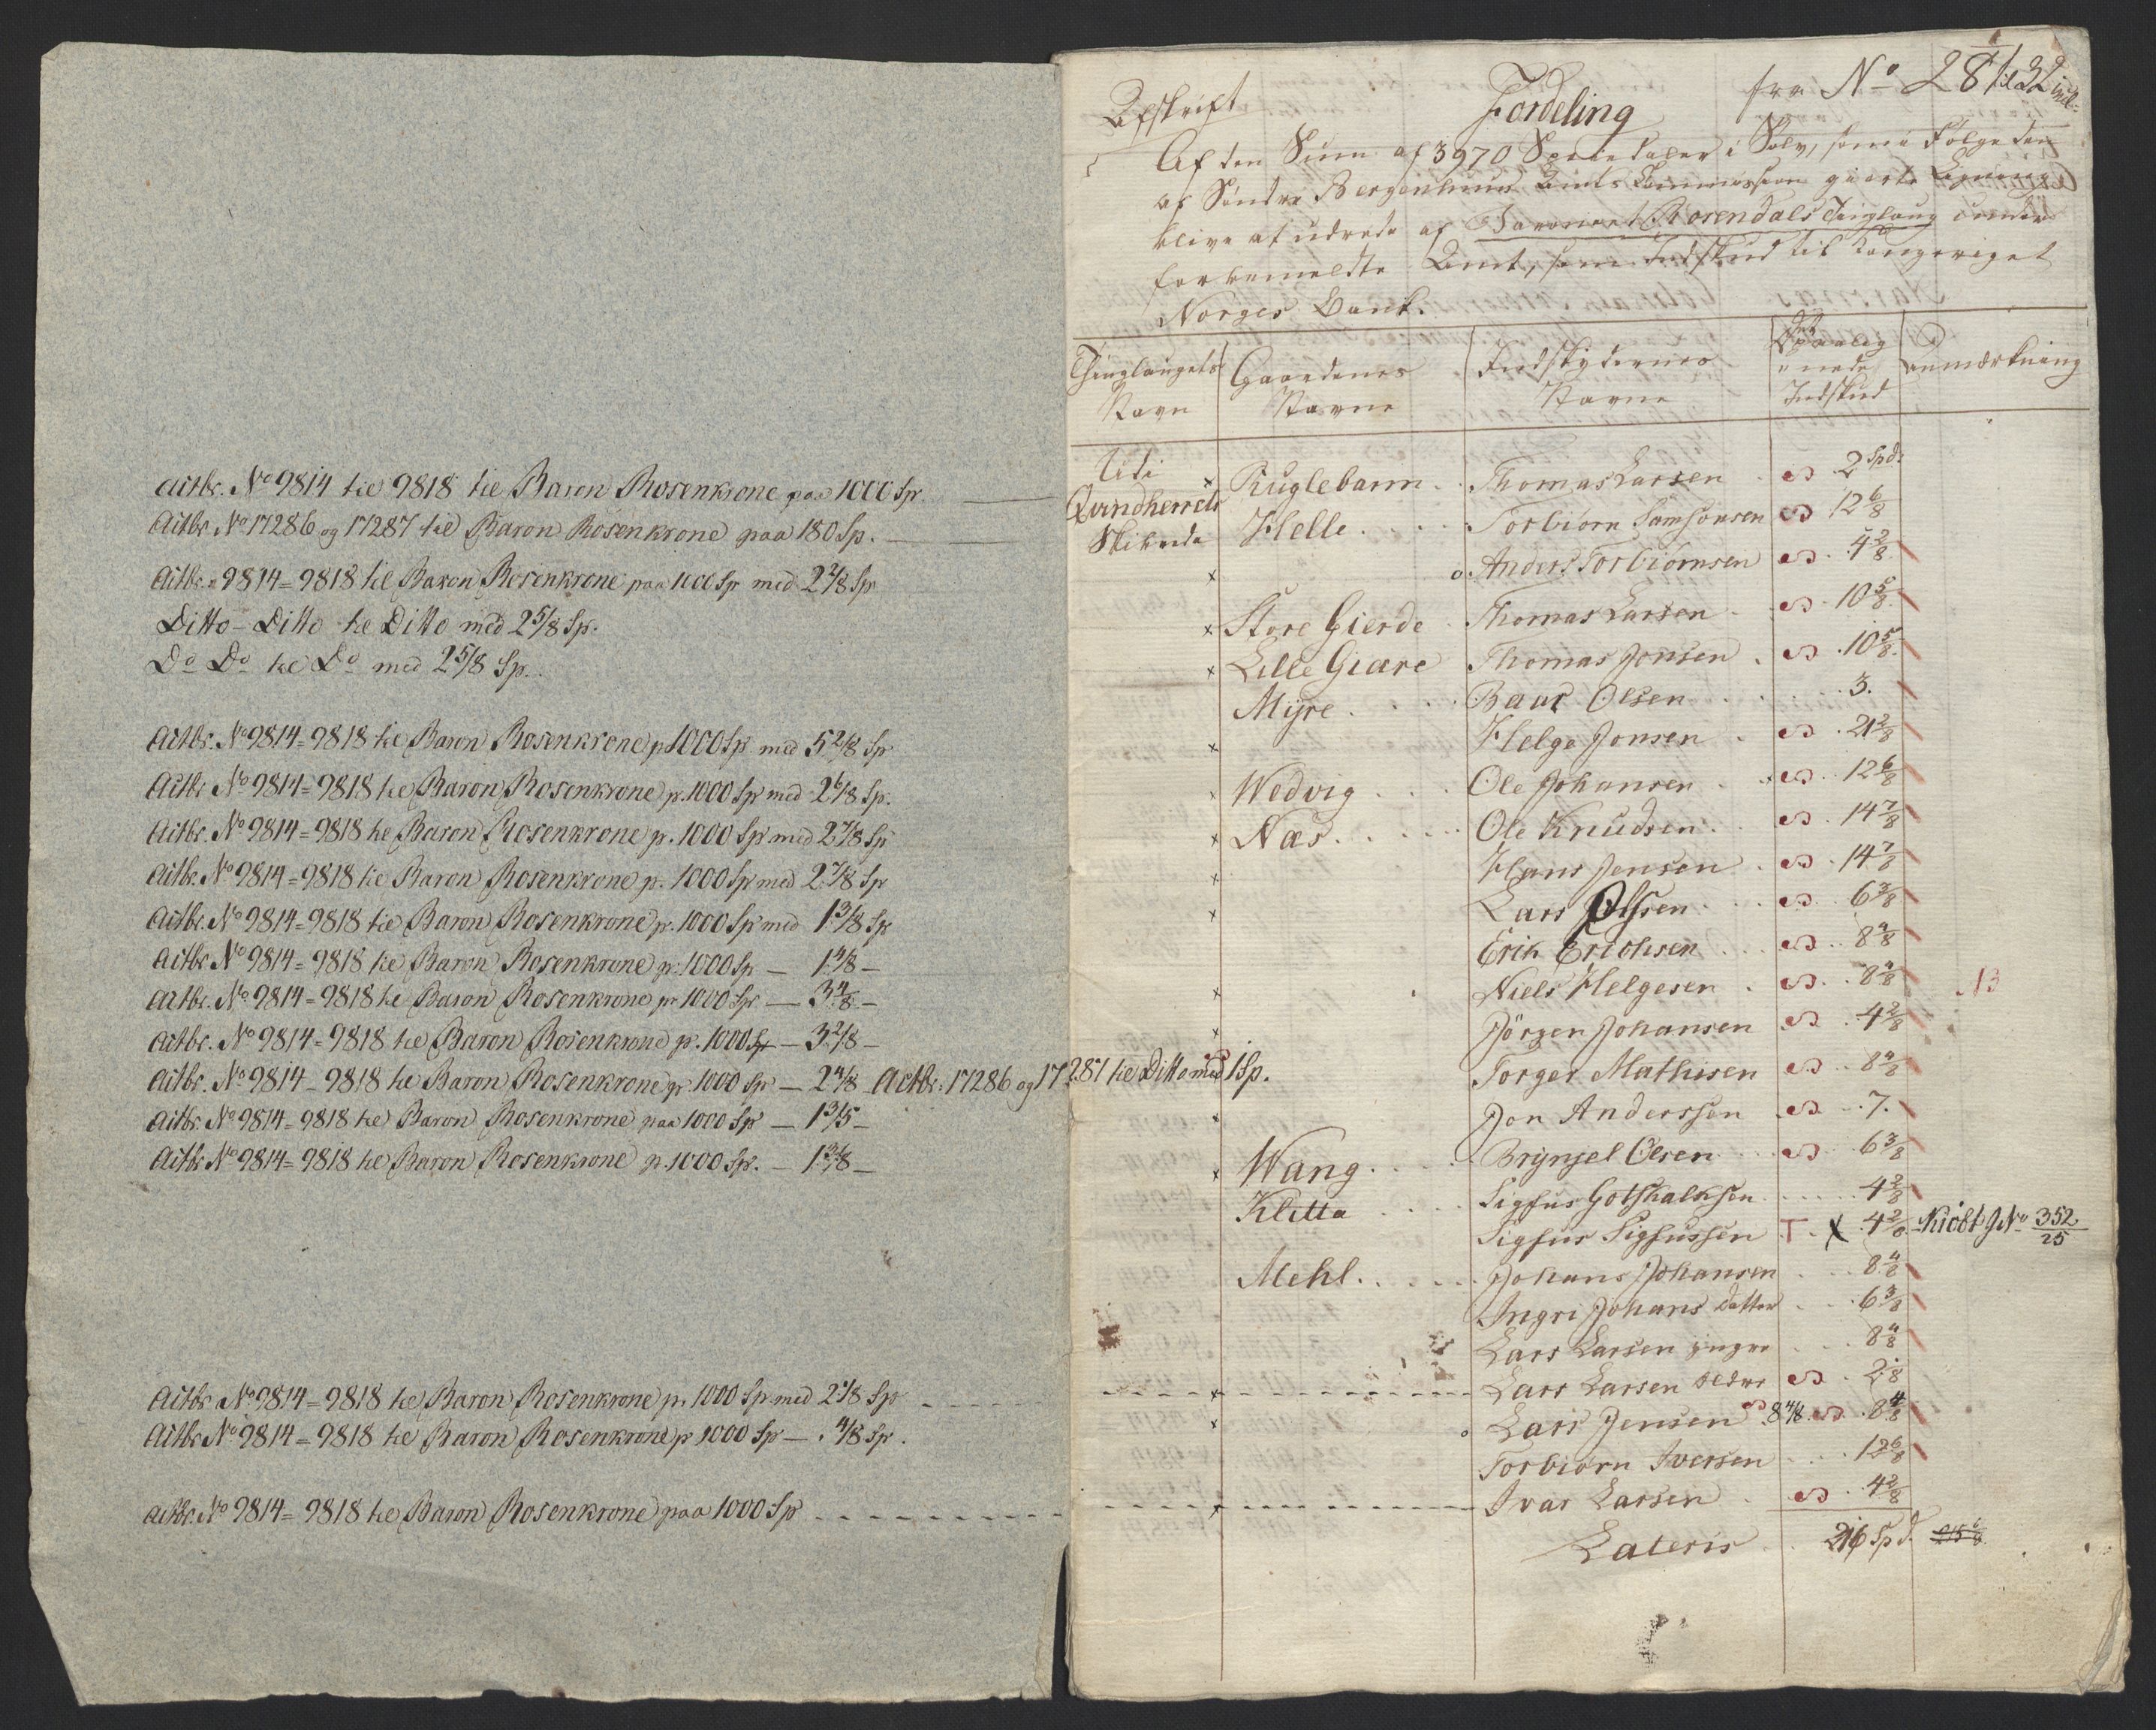 Actbr. No 9814 til 9818 til Baron Rosenkrone paa 1000 Sp.
Actbr No 17286 og 17287 til Baron Rosenkrone paa 180 Sp.
Actbr. 9814 = 9818 til Baron Rosenkrone paa 1000 Sp med 2 2/8 Sp
Ditto - Ditto til Ditto med 2 5/8 Sp.
Do Do til Do med 2 5/8 Sp.
Actbr. No 9814 = 9818 til Baron Rosenkrone p 1000 Sp med 5 2/8 Sp
Actbr No 9814 = 9818 til Baron Rosenkrone p. 1000 Sp med 2 6/8 Sp.
Actbr. No 9814 = 9818 til Baron Rosenkrone p. 1000 Sp med 2 7/8 Sp
Actbr. No 9814 = 9818 til Baron Rosenkrone p. 1000 Sp med 2 7/8 Sp
Actbr. No 9814 = 9818 til Baron Rosenkrone p. 1000 Sp med 1 3/8 Sp
Actbr No 9814 = 9818 til Baron Rosenkrone p. 1000 Sp — 1 4/8 —
Actbr. No 9814 = 9818 til Baron Rosenkrone pr 1000 Sp — 3 4/8 —
Actbr. No 9814 = 9818 til Baron Rosenkrone p. 1000 Sp — 3 2/8 —
Actbr. No 9814 - 9818 til Baron Rosenkrone pr 1000 Sp — 2 4/8 Actbr: 17286 og 17287 til Ditto med 1 Sp.
Actbr. No 9814 = 9818 til Baron Rosenkrone paa 1000 Sp — 1 3/5 —
Actbr No 9814 = 9818 til Baron Rosenkrone p. 1000 Sp. — 1 3/8 —
Actbr No 9814 = 9818 til Baron Rosenkrone p. 1000 Sp med Sp
Actbr No 9814 = 9818 til Baron Rosenkrone p 1000 Sp — 4/8 Sp.
Actbr. No 9814 = 9818 til Baron Rosenkrone paa 1000 Sp
Afskrift Fordeling fra No 28 til 32 incl.
Af den Sum af 3970 Speciedaler i Sølv, som i Følge den
af Søndre Bergenhuus Amts Commission giorte Ligning
blive at udrede af Baroniet Rosendals Tinglaug under
forbemeldte Amt, som Indskud til Kongeriget
Norges Bank.
Thinglaugets Navn | Gaardenes Navne | Indskydernes Navne | Det paalignede Indskud | Anmærkning
Udi Qvindherrets Skibrede
Kuglebarm Thomas Larsen 2 Spd.
Helle Torbiörn Samsonsen 12 6/8
Anders Torbiörnsen 4 2/8
Store Gierde Thomas Larsen 10 5/8
Lille Giære Thomas Jonsen 10 5/8
Myre Baar Olsen 3.
Helge Jonsen 21 2/8
Wedvig Ole Johansen 12 6/8
Næs Ole Knudsen 14 7/8
Hans Jensen 14 7/8
Lars Olsen 6 3/8
Erik Erichsen 8 4/8
Niels Helgesen 8 4/8
Jörgen Johansen 4 2/8
Torger Mathisen 8 4/8
Jon Anderssen 7.
Wang Brynjel Olsen 6 3/8
Kletta Sigfus Gotskalksen 4 2/8
Sigfus Sigfussen T. X 4 2/8 Kiöbt J No 352/25
Mehl Johans Johansen 8 4/8
Ingri Johans datter 6 3/8
Lars Larsen yngre 8 4/8
Lars Larsen ældre
Lars Jensen 8 4/8 8 4/8
Torbiörn Iversen 12 6/8
Ivar Larsen 4 2/8
Lateris 216 Spd.